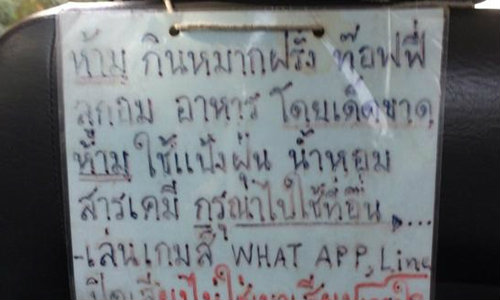 ห้าม กินหมากฝรั่ง ท๊อฟฟี่
ลูกอม อาหาร โดยเด็ดขาด
ห้าม ใช้แป้งฝุ่น น้ำหอม
สารเคมี กรุณาไปใช้ที่อื่น....
-เล่นเกมส์ WHAT APP, Line
ปิดเสียง